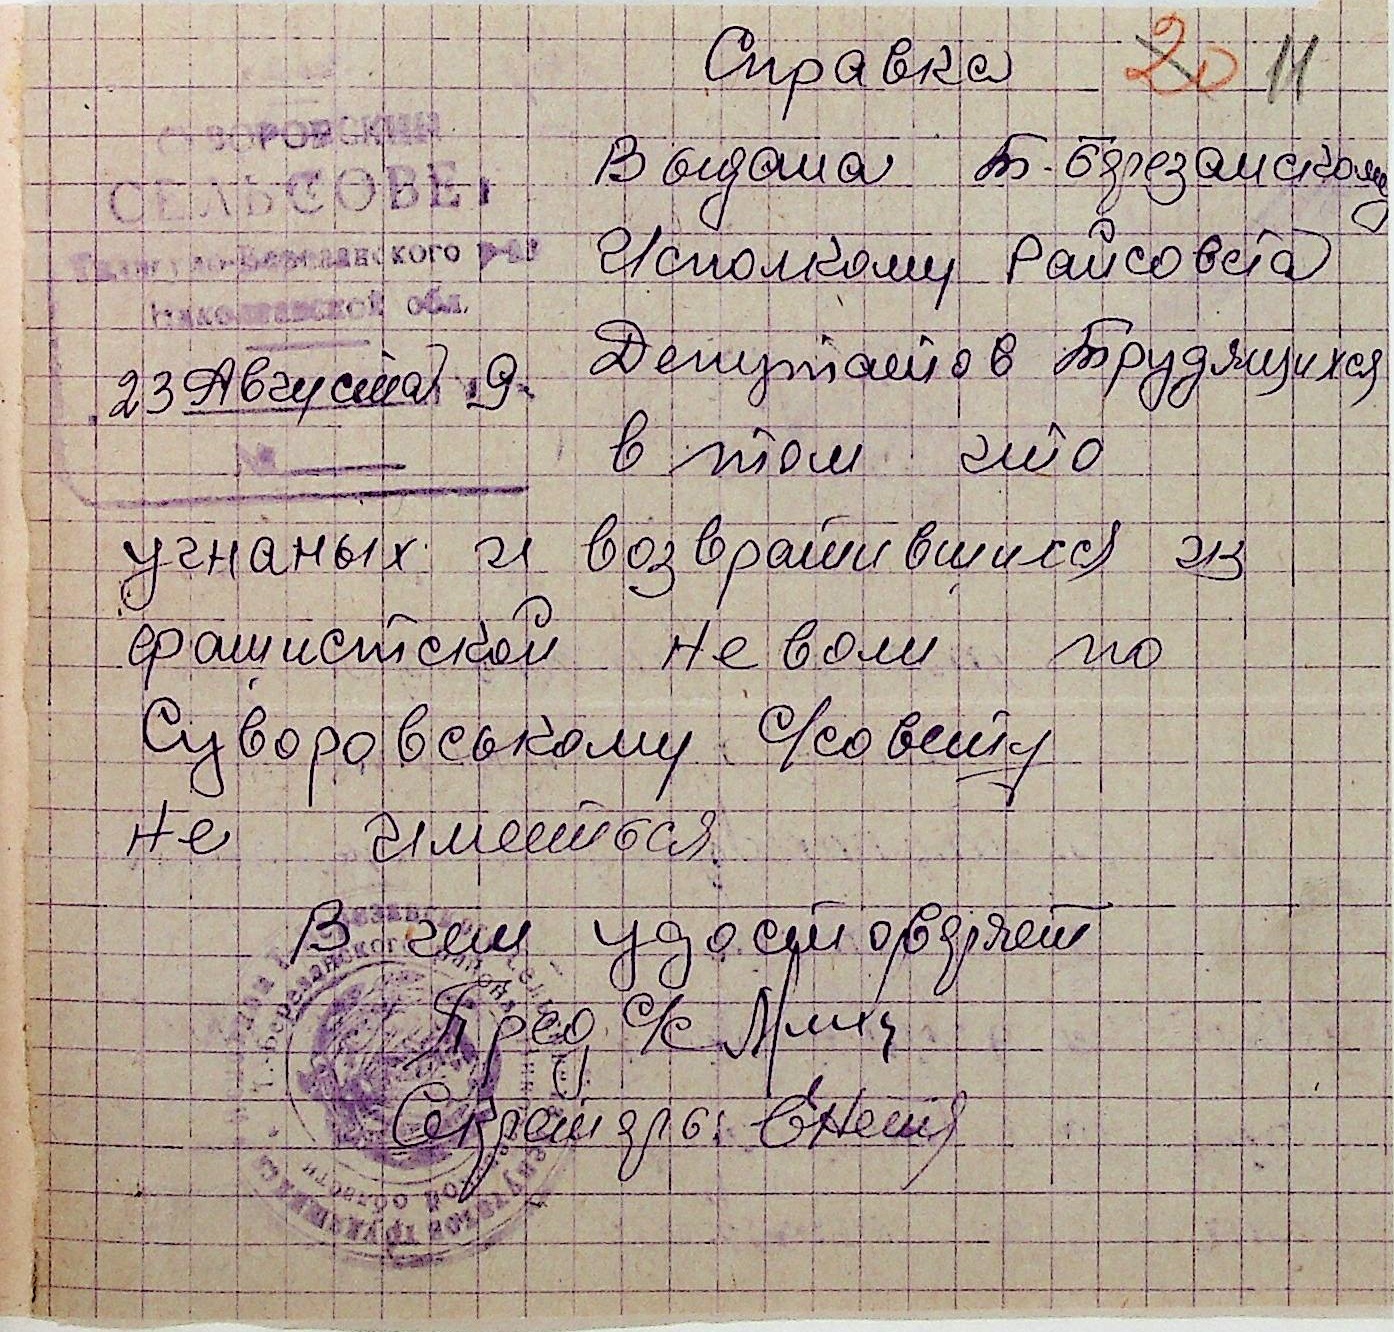 Справка 20 11
СУВОРОВСКИЙ
СЕЛЬСОВЕТ
Тилигуло-Березанского р-на
Николаевской обл.
23 Августа 19
№
Выдана Т-Березанскому
Исполкому Райсовета
Депутатов Трудящихся
в том что
угнаных и возвратившихся из
фашистской неволи по
Суворовському с/совету
не имеиться
В чем удостоверяет
Пред с/с
Секретарь: